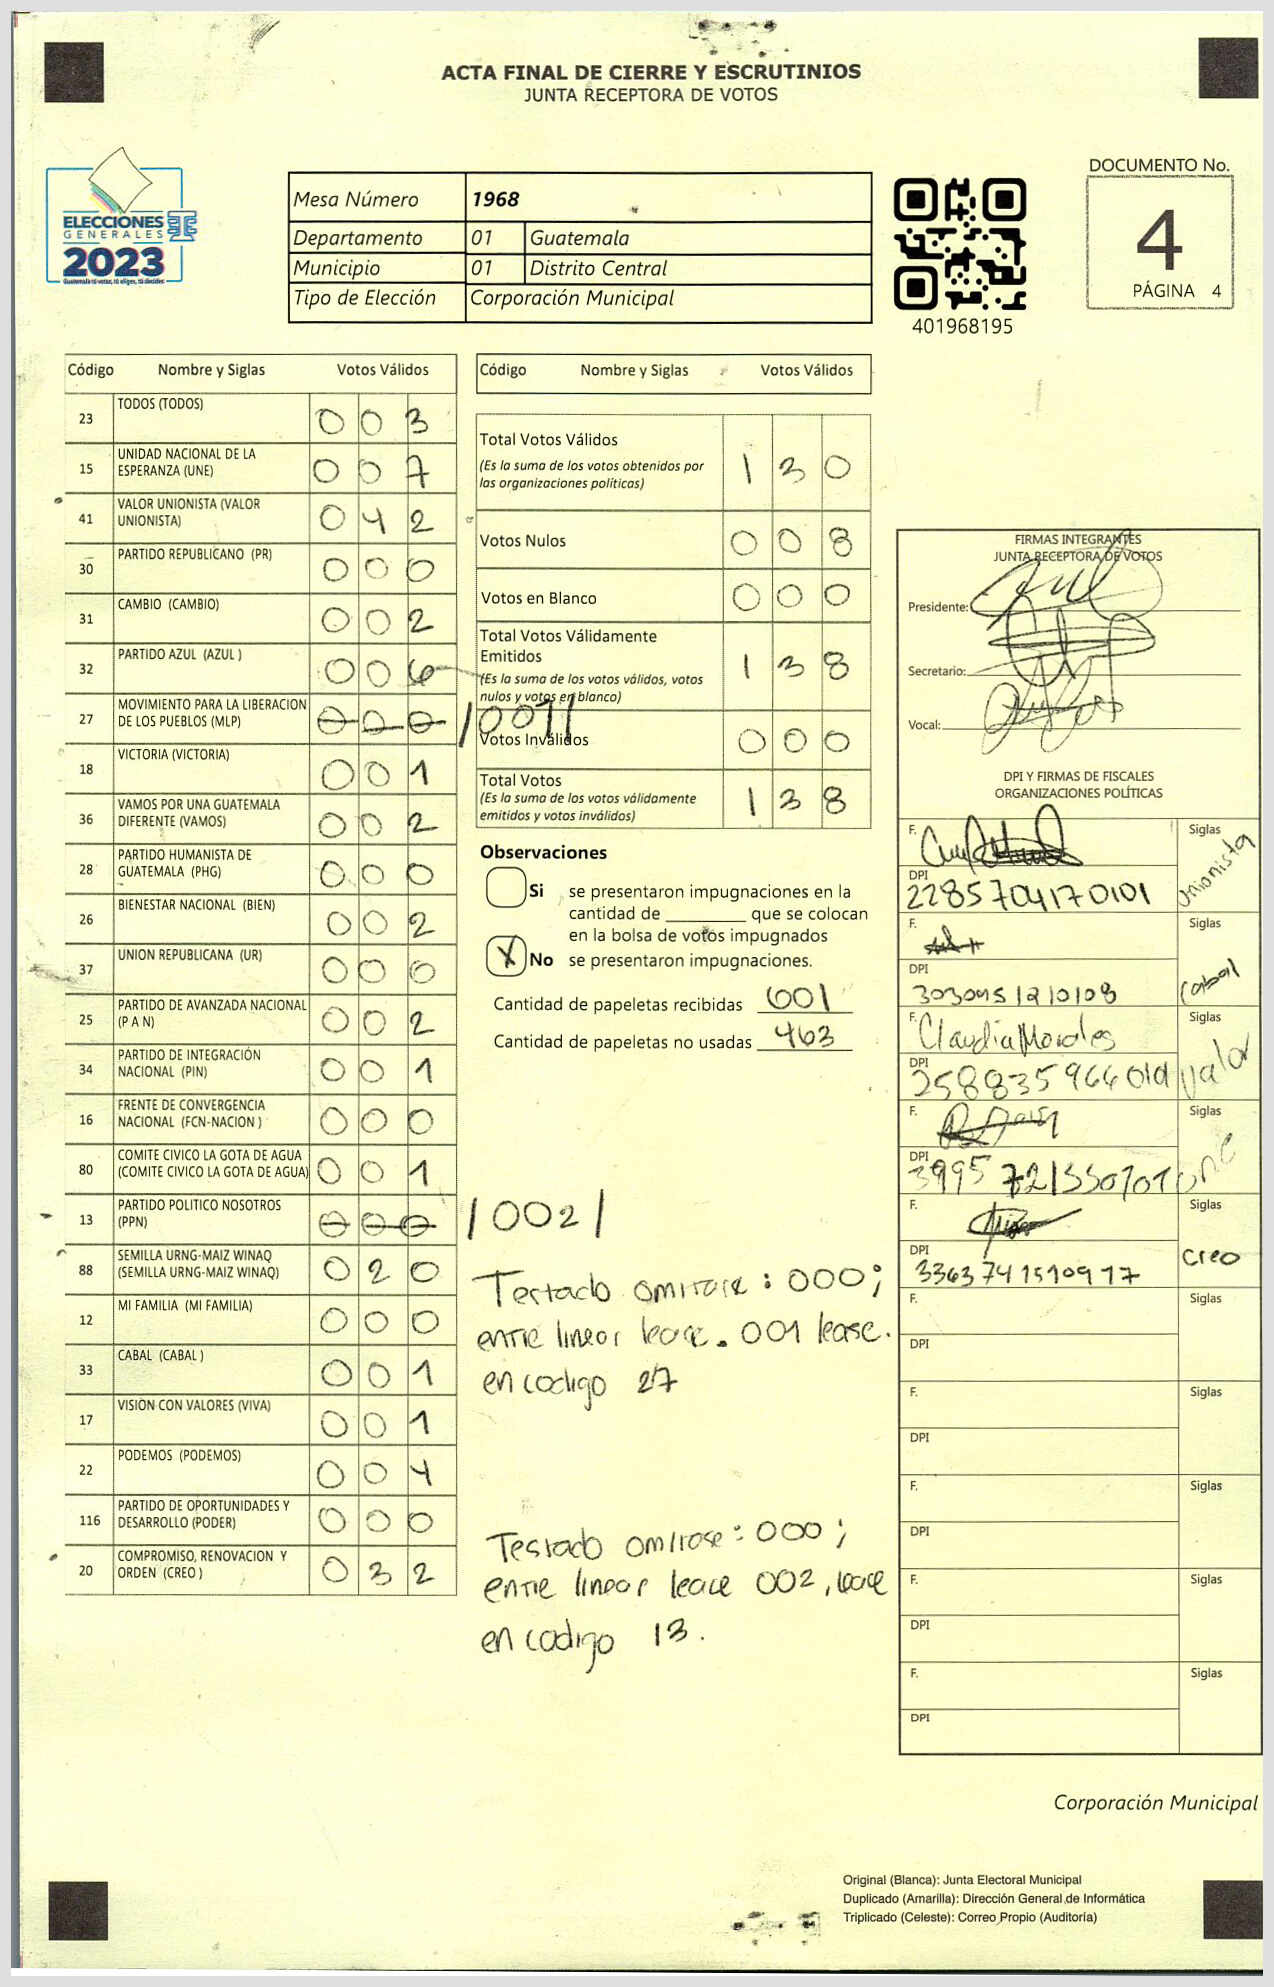 ACTA FINAL DE CIERRE Y ESCRUTINIOS
JUNTA RECEPTORA DE VOTOS
ELECCIONES
GENERALES
2023
Mesa Número 1968
Departamento 01 Guatemala
Municipio 01 Distrito Central
Tipo de Elección Corporación Municipal
401968195
DOCUMENTO No.
4
PÁGINA 4
Código Nombre y Siglas Votos Válidos
23 TODOS (TODOS) 0 0 3
15 UNIDAD NACIONAL DE LA ESPERANZA (UNE) 0 0 7
41 VALOR UNIONISTA (VALOR UNIONISTA) 0 4 2
30 PARTIDO REPUBLICANO (PR) 0 0 0
31 CAMBIO (CAMBIO) 0 0 2
32 PARTIDO AZUL (AZUL ) 0 0 6
27 MOVIMIENTO PARA LA LIBERACION DE LOS PUEBLOS (MLP) 0 0 0 /001/
18 VICTORIA (VICTORIA) 0 0 1
36 VAMOS POR UNA GUATEMALA DIFERENTE (VAMOS) 0 0 2
28 PARTIDO HUMANISTA DE GUATEMALA (PHG) 0 0 0
26 BIENESTAR NACIONAL (BIEN) 0 0 2
37 UNION REPUBLICANA (UR) 0 0 0
25 PARTIDO DE AVANZADA NACIONAL (P A N) 0 0 2
34 PARTIDO DE INTEGRACIÓN NACIONAL (PIN) 0 0 1
16 FRENTE DE CONVERGENCIA NACIONAL (FCN-NACION ) 0 0 0
80 COMITE CIVICO LA GOTA DE AGUA (COMITE CIVICO LA GOTA DE AGUA) 0 0 1
13 PARTIDO POLITICO NOSOTROS (PPN) 0 0 0 /002/
88 SEMILLA URNG-MAIZ WINAQ (SEMILLA URNG-MAIZ WINAQ) 0 2 0
12 MI FAMILIA (MI FAMILIA) 0 0 0
33 CABAL (CABAL ) 0 0 1
17 VISION CON VALORES (VIVA) 0 0 1
22 PODEMOS (PODEMOS) 0 0 4
116 PARTIDO DE OPORTUNIDADES Y DESARROLLO (PODER) 0 0 0
20 COMPROMISO, RENOVACION Y ORDEN (CREO ) 0 3 2
Código Nombre y Siglas Votos Válidos
Total Votos Válidos 1 3 0
(Es la suma de los votos obtenidos por
las organizaciones políticas)
Votos Nulos 0 0 8
Votos en Blanco 0 0 0
Total Votos Válidamente
Emitidos 1 3 8
(Es la suma de los votos válidos, votos
nulos y votos en blanco)
Votos Inválidos 0 0 0
Total Votos 1 3 8
(Es la suma de los votos válidamente
emitidos y votos inválidos)
Observaciones
Si se presentaron impugnaciones en la
cantidad de ________ que se colocan
en la bolsa de votos impugnados
X No se presentaron impugnaciones.
Cantidad de papeletas recibidas 601
Cantidad de papeletas no usadas 463
Testado omitase : 000 ;
entre linear lease . 001 lease.
en codigo 27
Testado omitase : 000 ;
entre linear lease 002, lease
en codigo 13.
FIRMAS INTEGRANTES
JUNTA RECEPTORA DE VOTOS
Presidente:
Secretario:
Vocal:
DPI Y FIRMAS DE FISCALES
ORGANIZACIONES POLÍTICAS
F. Siglas
DPI Unionista
2285704170101
F. Siglas
DPI Cabal
F. Claudia Morales Siglas
DPI Valor
F. Siglas
DPI une
F. Siglas
DPI Creo
F. Siglas
DPI
F. Siglas
DPI
F. Siglas
DPI
F. Siglas
DPI
F. Siglas
DPI
Corporación Municipal
Original (Blanca): Junta Electoral Municipal
Duplicado (Amarilla): Dirección General de Informática
Triplicado (Celeste): Correo Propio (Auditoría)